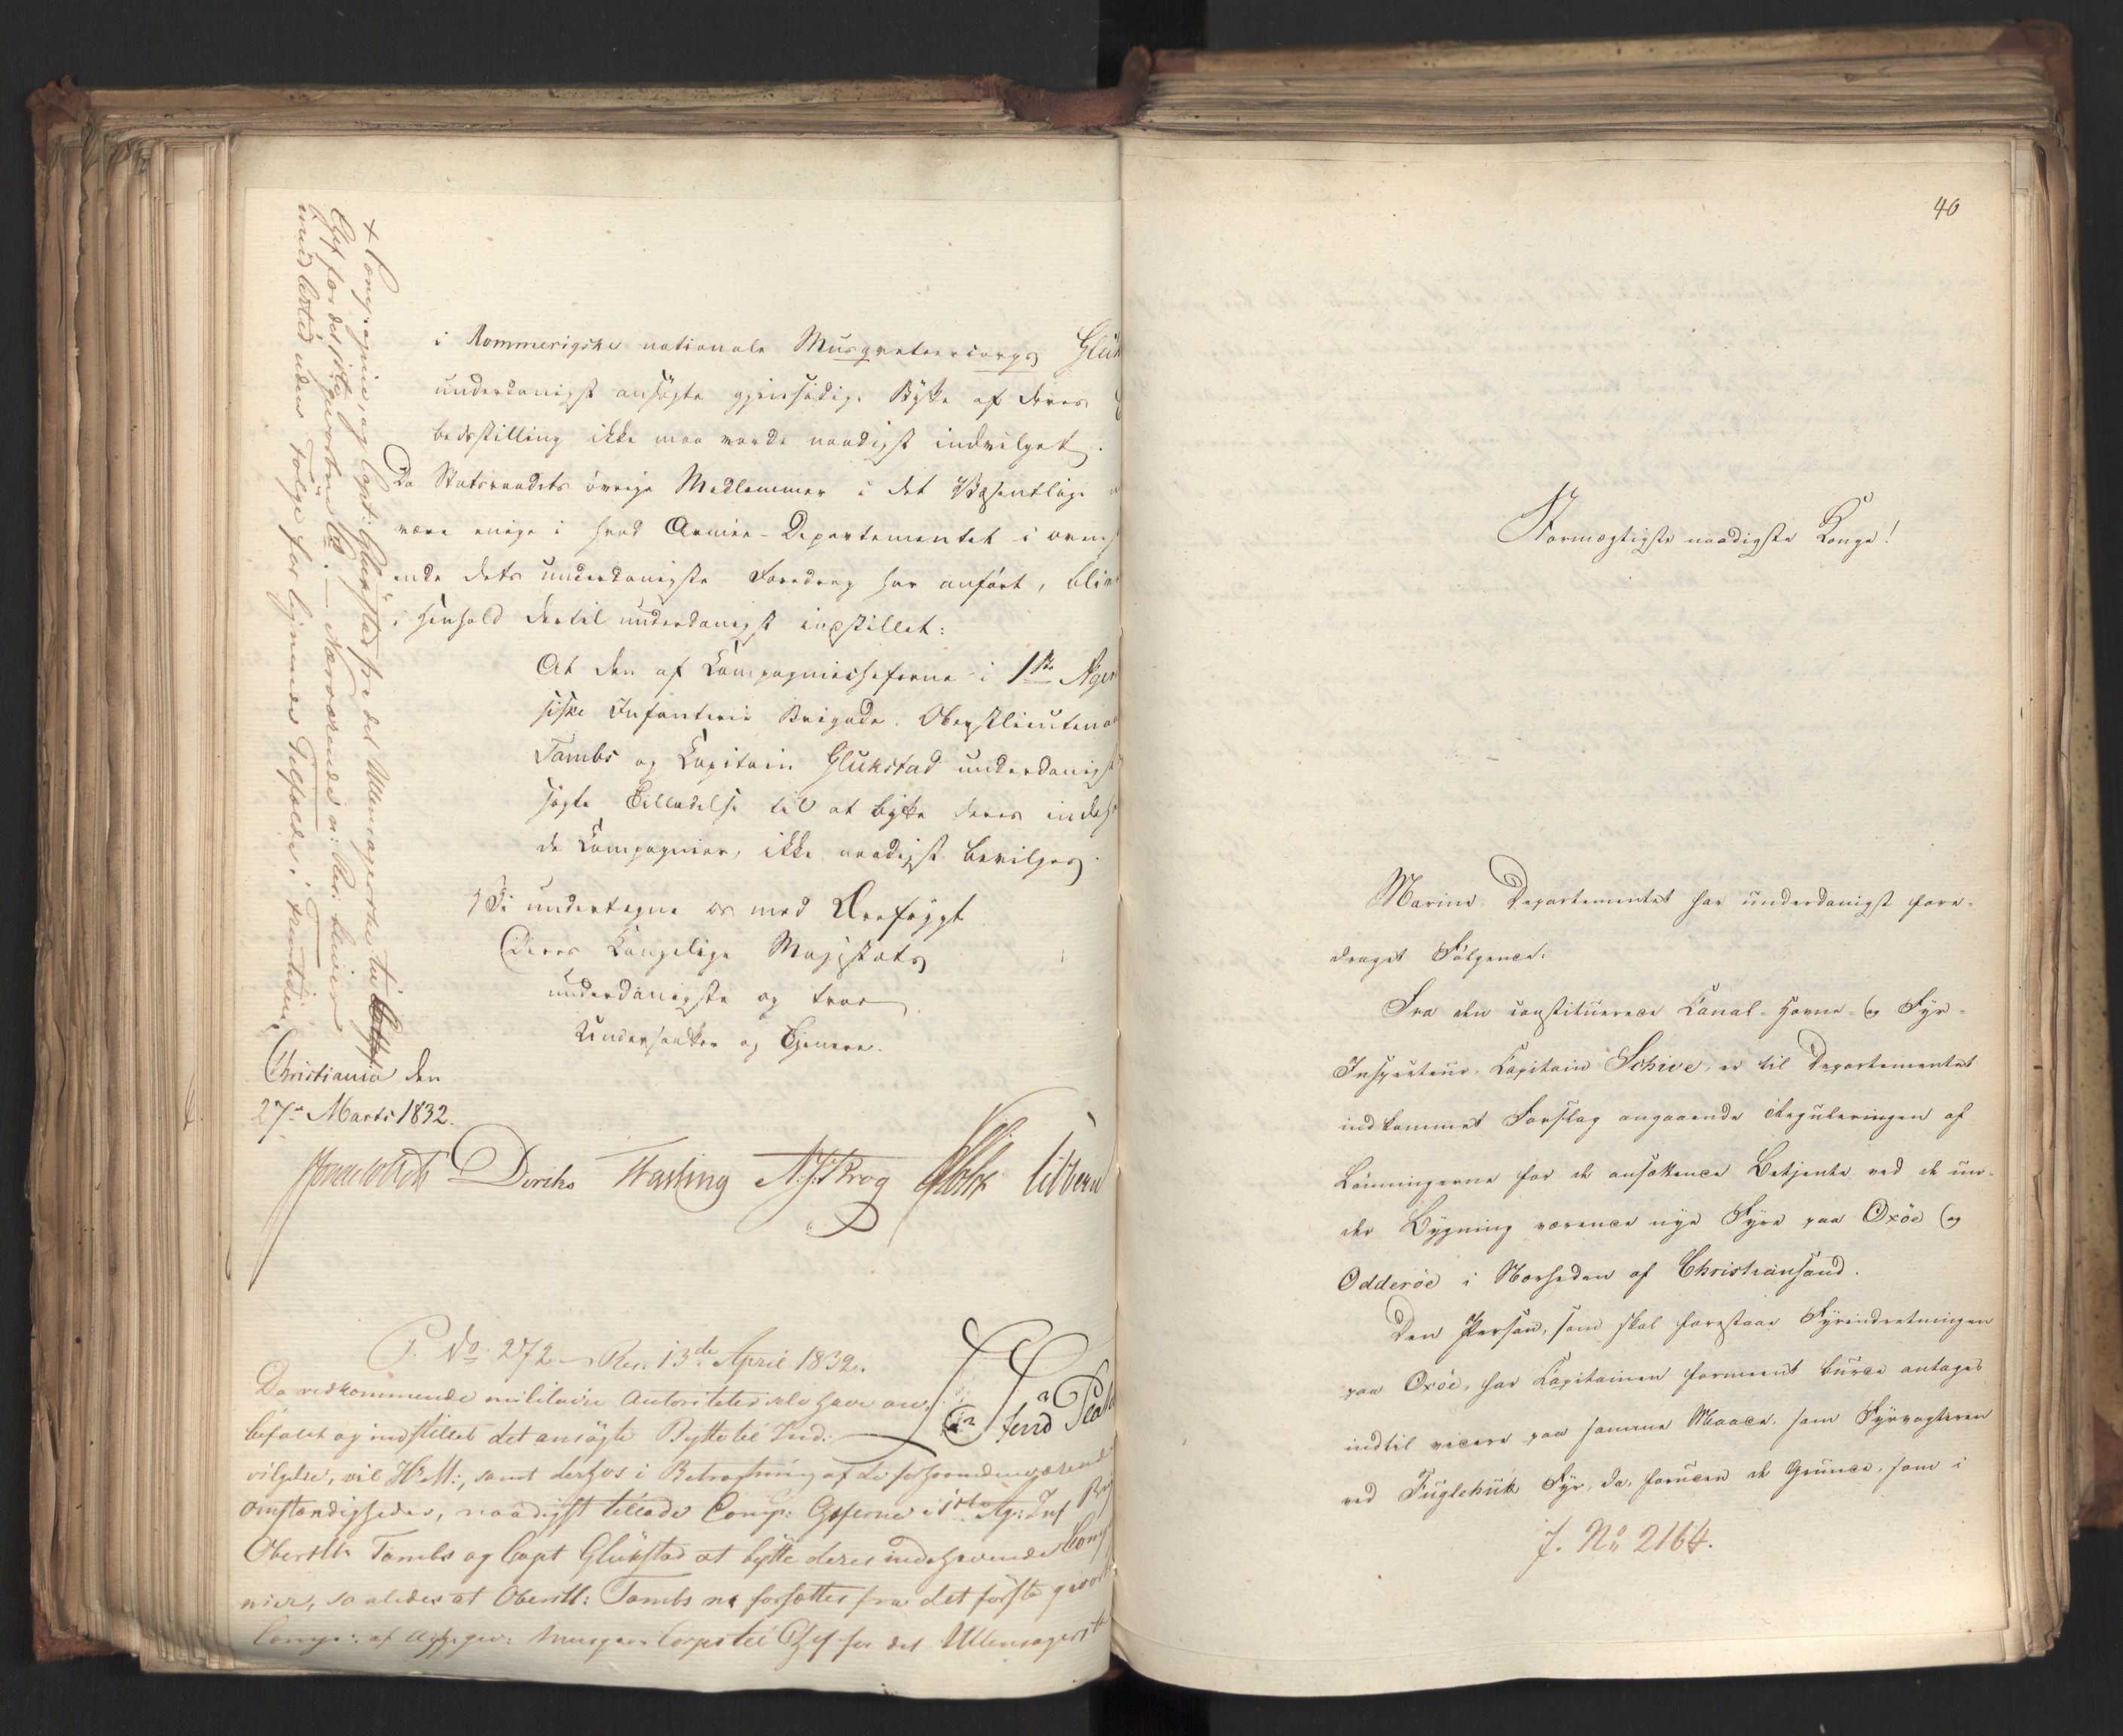 i Rommerigske nationale Musqveteercorps Gluk
underdanigst ansøgte gjensidige Bytte af deres
bedstilling ikke maa vorde naadigst indvilget.
Da Statsraadets øvrige Medlemmer i det Væsentlige
være enige i hvad Armee-Departementet i oven
ende dets underdanigste Foredrag har anført, bliver
i Henhold dertil underdanigst indstillet:
At den af Compagniecheferne i 1ste Agers
huske Infanterie Brigade, Oberstlieutenant
Tambs og Capitain Glükstad underdanigst
søgte Tilladelse til at bytte deres indeha
de Compagnier, ikke naadigst bevilges.
Vi undertegne os med Ærefrygt
Deres Kongelige Majestæts
underdanigste og troe
Undersaatter og Tjenere.
Christiania den
27de Marts 1832.
Diriks Fasting N. J. Krog
P. No. 272 Res. 13de April 1832.
Da vedkommende militaire Autoriteter have an-
befalet og indstillet det ansøgte Bytte til Ind:
vilgelse, vil H: M:, samt derhos i Betragtning af de forhaandenværende
Omstændigheder, naadigst tillade Comp: Cheferne i 1ste Ag: Inf Brig
Oberstlt. Tambs og Capt Glükstad at bytte deres indehavende Comp
nier, saaledes at Oberstl: Tambs forsættes fra det første gevorbne
Comp: af Corps til Chef for det Ullensagerske
+ Compagnie, og Capt: Glükstad fra det Ullensagerske til
Chef for det første gevorbne Co. — Nærværende
imidlertid uden Følge for lignende Tilfælde i Fremtiden.
40
Stormægtigste naadigste Konge!
Marine-Departementet har underdanigst fore-
draget Følgende:
Fra den constituerede Canal- Havne- og Fyr-
Inspecteur, Capitain Schive, er til Departementet
indkommet Forslag angaaende Reguleringen af
Lønningerne for de ansættende Betjente ved de un-
der Bygning værende nye Fyre paa Oxöe og
Odderöe i Nærheden af Christiansand.
Den Person, som skal forestaae Fyrindretningen
paa Oxöe, har Capitainen formeent burde antages
indtil videre paa samme Maade, som Fyrvogteren
ved Fuglehuk Fyr, da, foruden de Grunde, som i
J. No 2164.